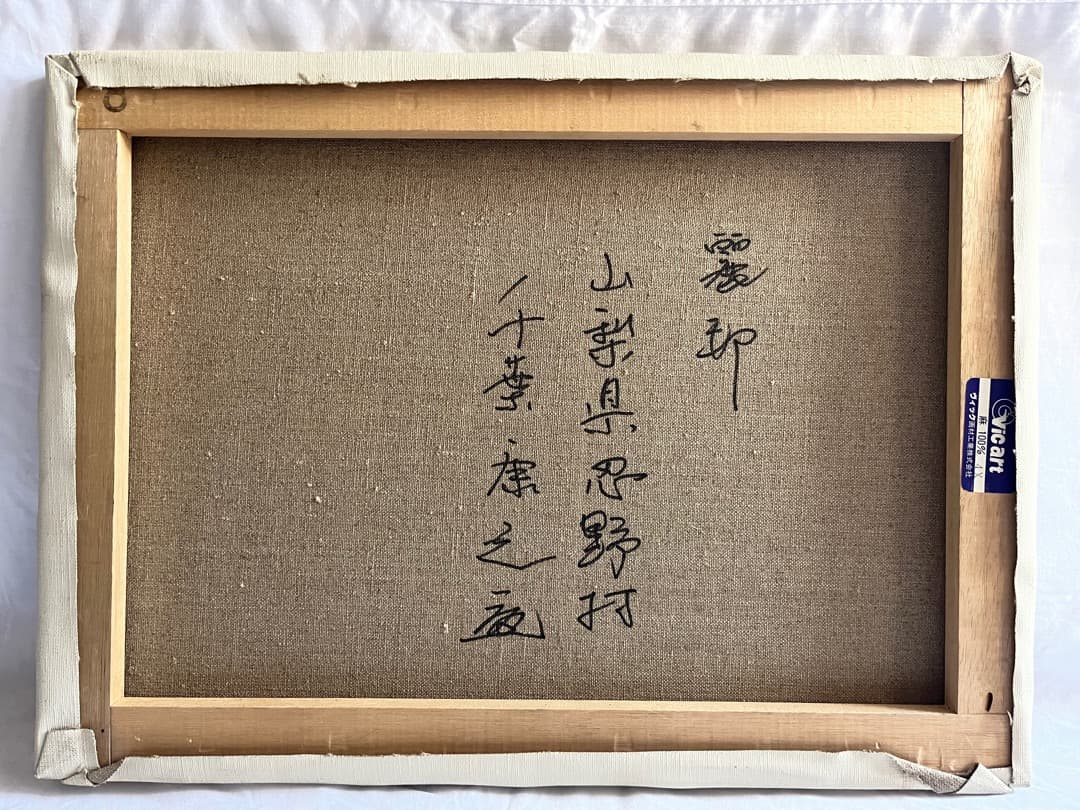 麗邨
山梨県忍野村
千葉康之
Vicart
麻 100%
ウイック画材工業株式会社